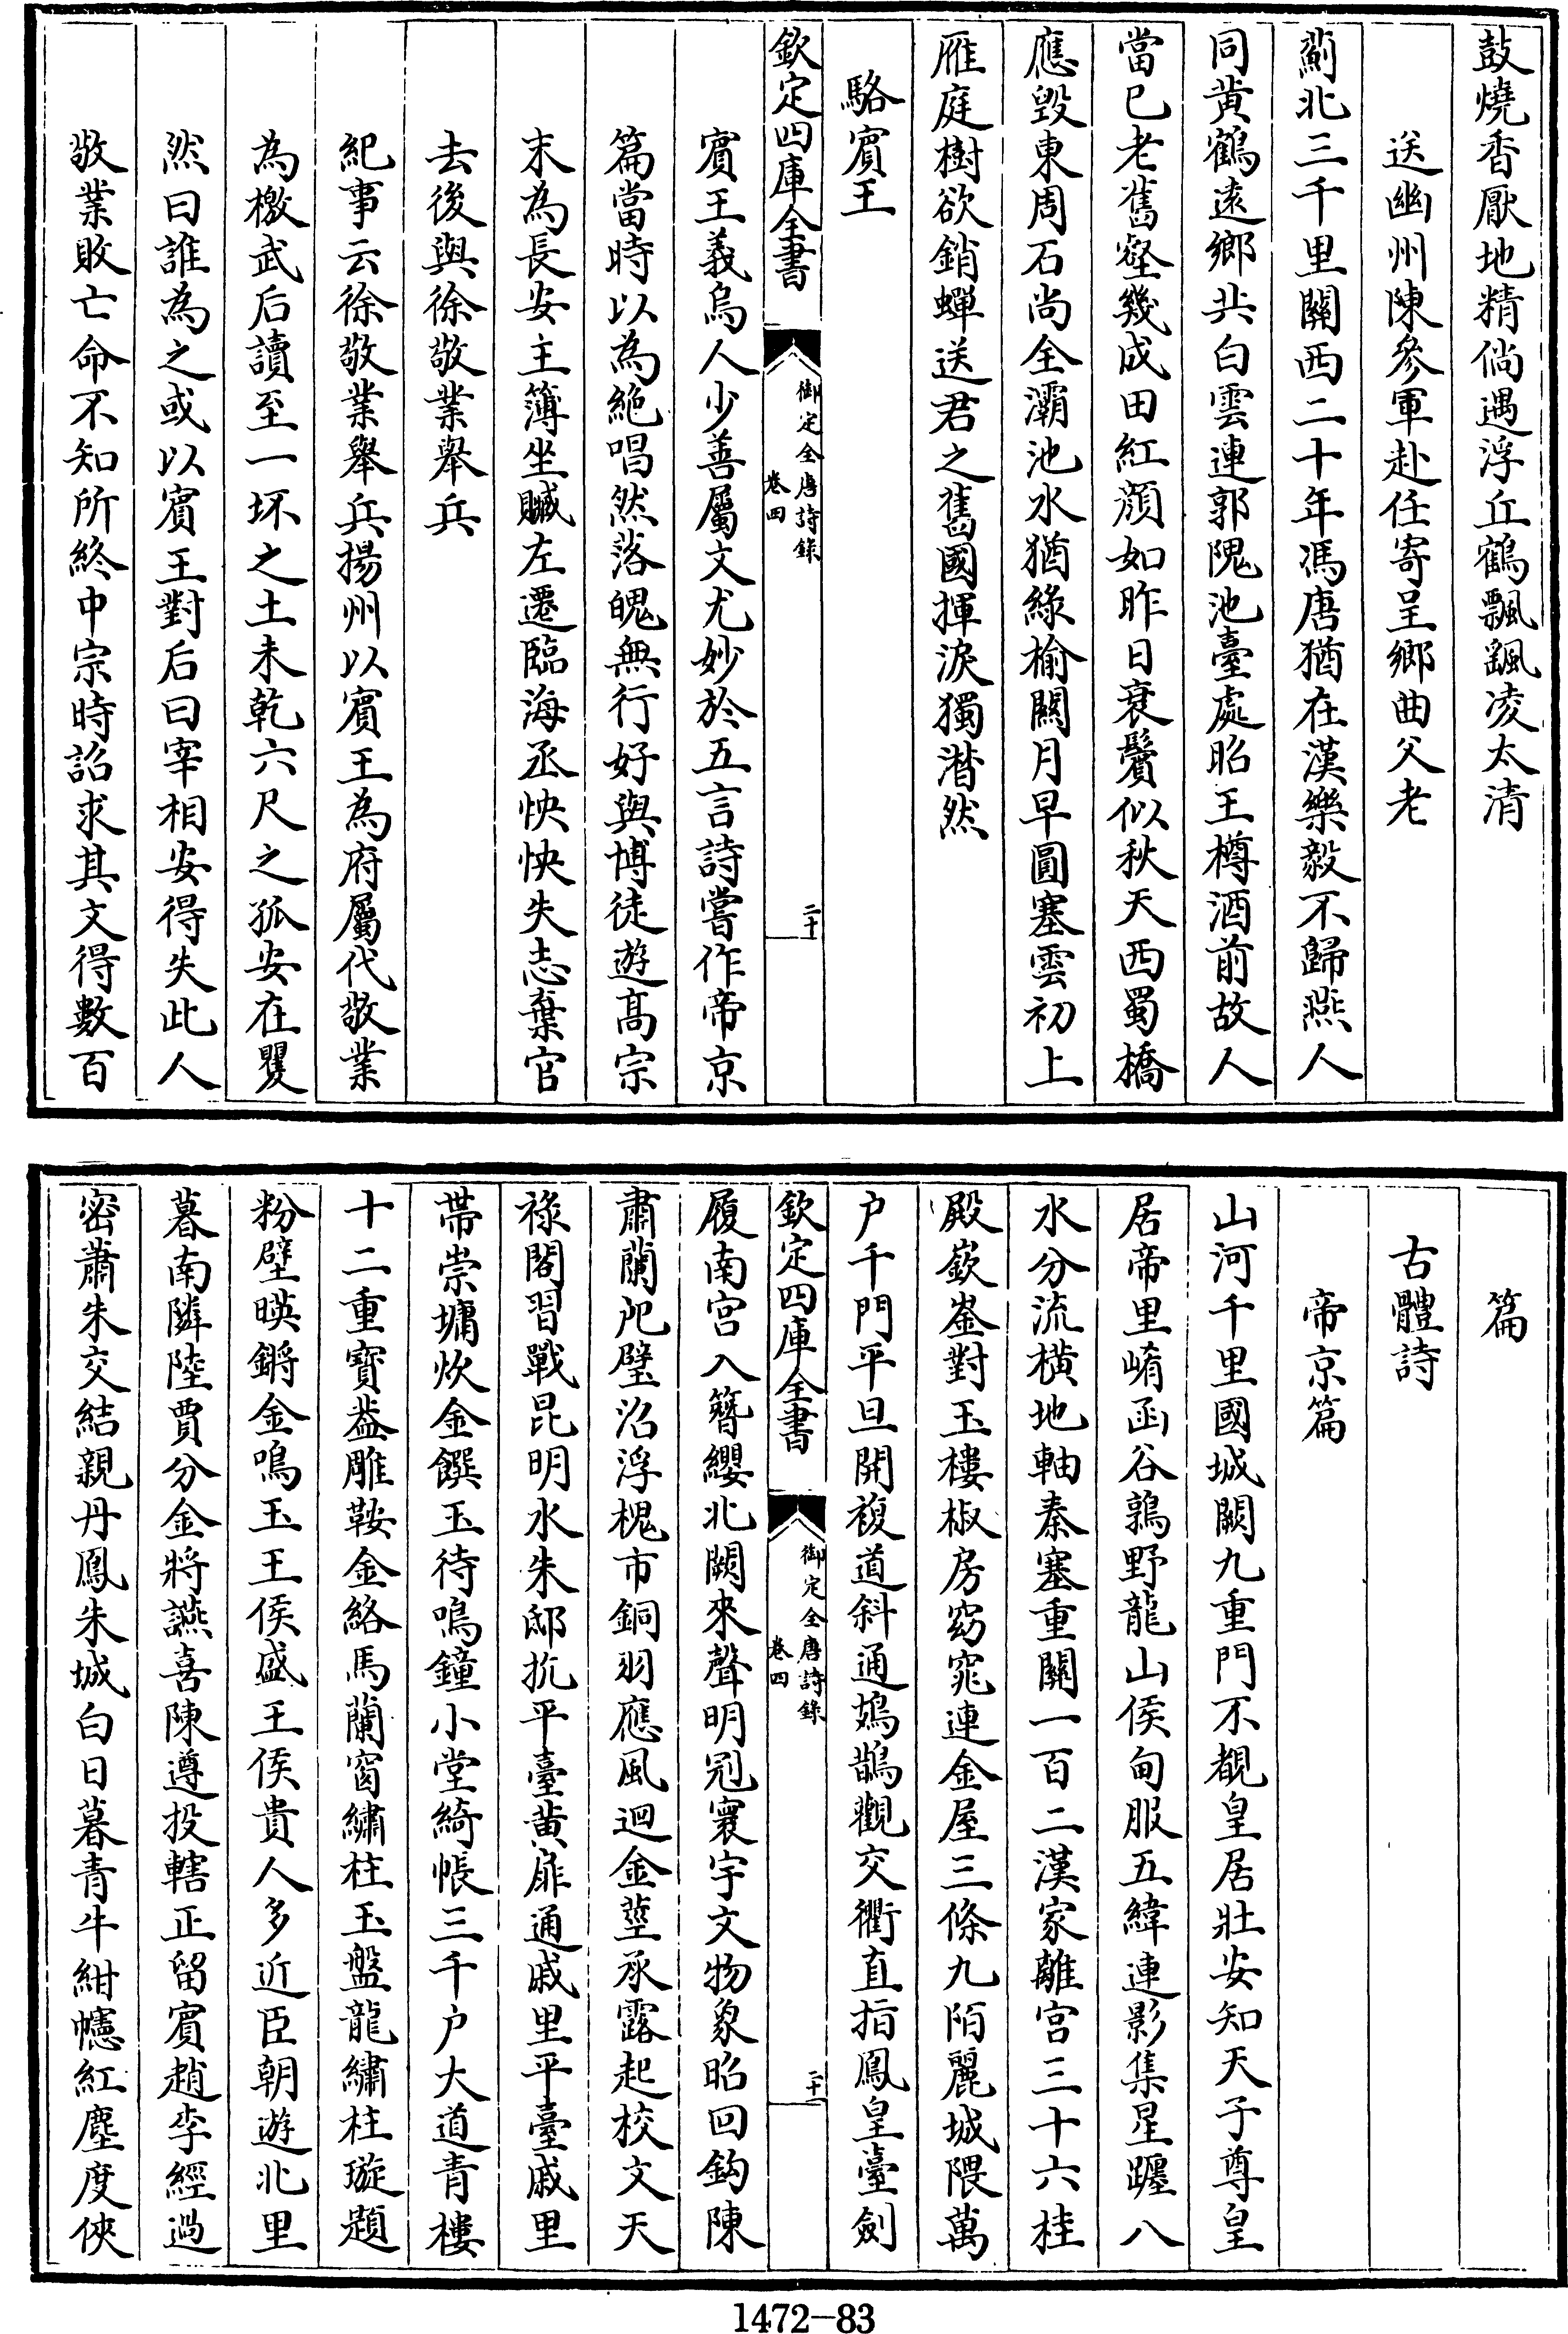 鼓燒香厭地精倘遇浮丘鶴飄颻凌太清
送幽州陳參軍赴任寄呈鄉曲父老
薊北三千里關西二十年馮唐猶在漢樂毅不歸燕人
同黄鶴遠鄉共白雲連郭隗池臺處昭王樽酒前故人
當已老舊壑幾成田紅顔如昨日衰鬢似秋天西蜀橋
應毁東周石尚全灞池水猶綠榆關月早圓塞雲初上
雁庭樹欲銷蟬送君之舊國揮淚獨潸然
駱賓王
欽定四庫全書
御定全唐詩錄
卷四
二十
賓王義烏人少善屬文尤妙於五言詩嘗作帝京
篇當時以為絶唱然落魄無行好與博徒遊髙宗
末為長安主簿坐贓左遷臨海丞怏怏失志棄官
去後與徐敬業舉兵
紀事云徐敬業舉兵揚州以賓王為府屬代敬業
為檄武后讀至一坏之土未乾六尺之孤安在矍
然曰誰為之或以賓王對后曰宰相安得失此人
敬業敗亡命不知所終中宗時詔求其文得數百
篇
古體詩
帝京篇
山河千里國城闕九重門不覩皇居壯安知天子尊皇
居帝里崤函谷鶉野龍山侯甸服五緯連影集星躔八
水分流橫地軸秦塞重關一百二漢家離宫三十六桂
殿嶔崟對玉樓椒房窈窕連金屋三條九陌麗城隈萬
户千門平旦開複道斜通鳷鵲觀交衢直指鳳皇臺劍
欽定四庫全書
御定全唐詩錄
卷四
二十一
履南宫入簪纓北闕來聲明冠寰宇文物象昭回鈎陳
肅蘭戺璧沼浮槐市銅羽應風迴金莖承露起校文天
祿閣習戰昆明水朱邸抗平臺黄扉通戚里平臺戚里
帶崇墉炊金饌玉待鳴鐘小堂綺帳三千户大道青樓
十二重寶葢雕鞍金絡馬蘭窗繡柱玉盤龍繡柱璇題
粉壁暎鏘金鳴玉王侯盛王侯貴人多近臣朝遊北里
暮南隣陸賈分金將讌喜陳遵投轄正留賓趙李經過
密蕭朱交結親丹鳳朱城白日暮青牛紺幰紅塵度俠
1472-83